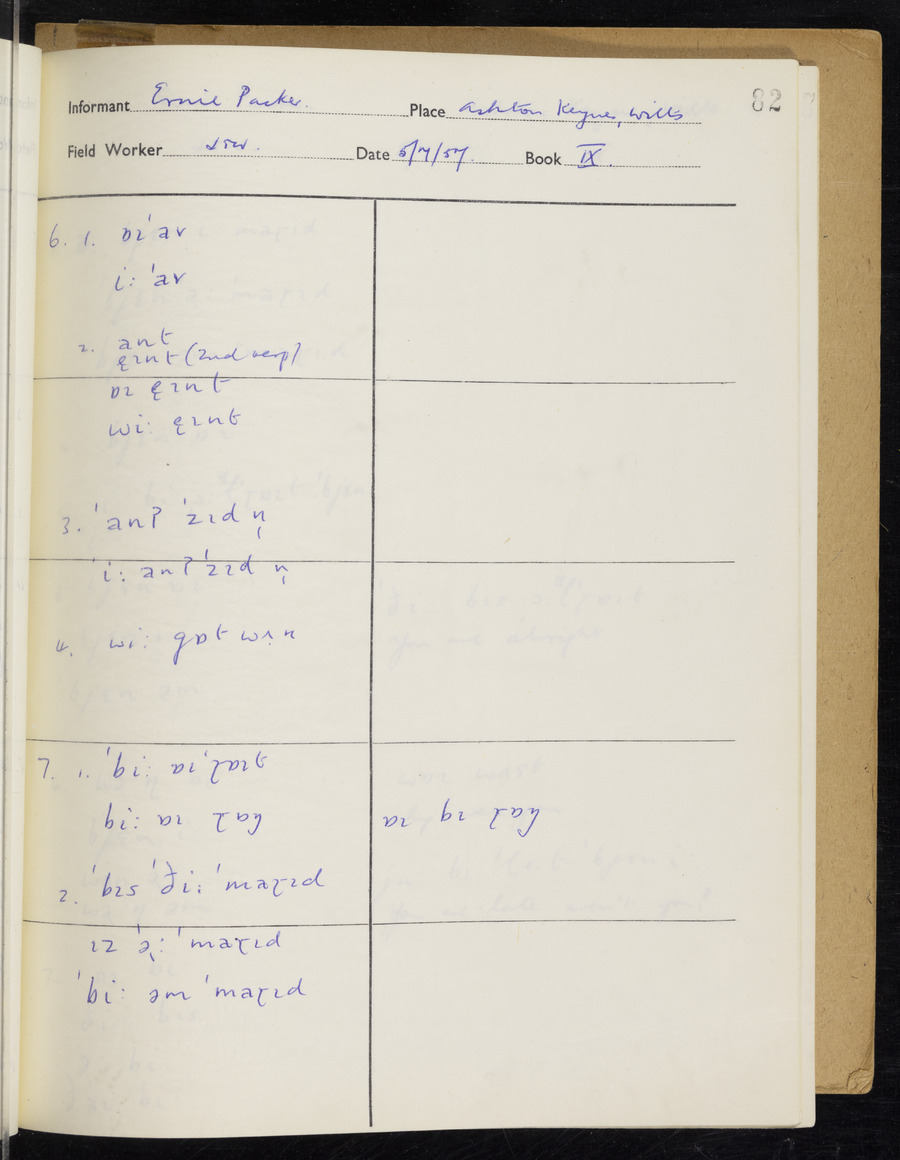 Informant Ernie Packer. Place Ashton Keynes, Wilts 82
Field Worker Date 5/7/57. Book IX.
6. 1. ɒɪ ˈav
i: ˈav
2. ant
ę̈ɪnt (2nd resp)
ɒɪ ę̈ɪnt
wi: ę̈ɪnt
3. ˈanʔ ˈzɪd n̩
ˈi: anʔ ˈzɪd n̩
4. wi: gat wɪn
7. 1. ˈbi: aɪ
bi: aɪ
aɪ bɪ
2. ˈbɪs ˈði: ˈmaɽɪd
ɪz ˈmaɽɪd
ˈbi: əm ˈmaɽɪd